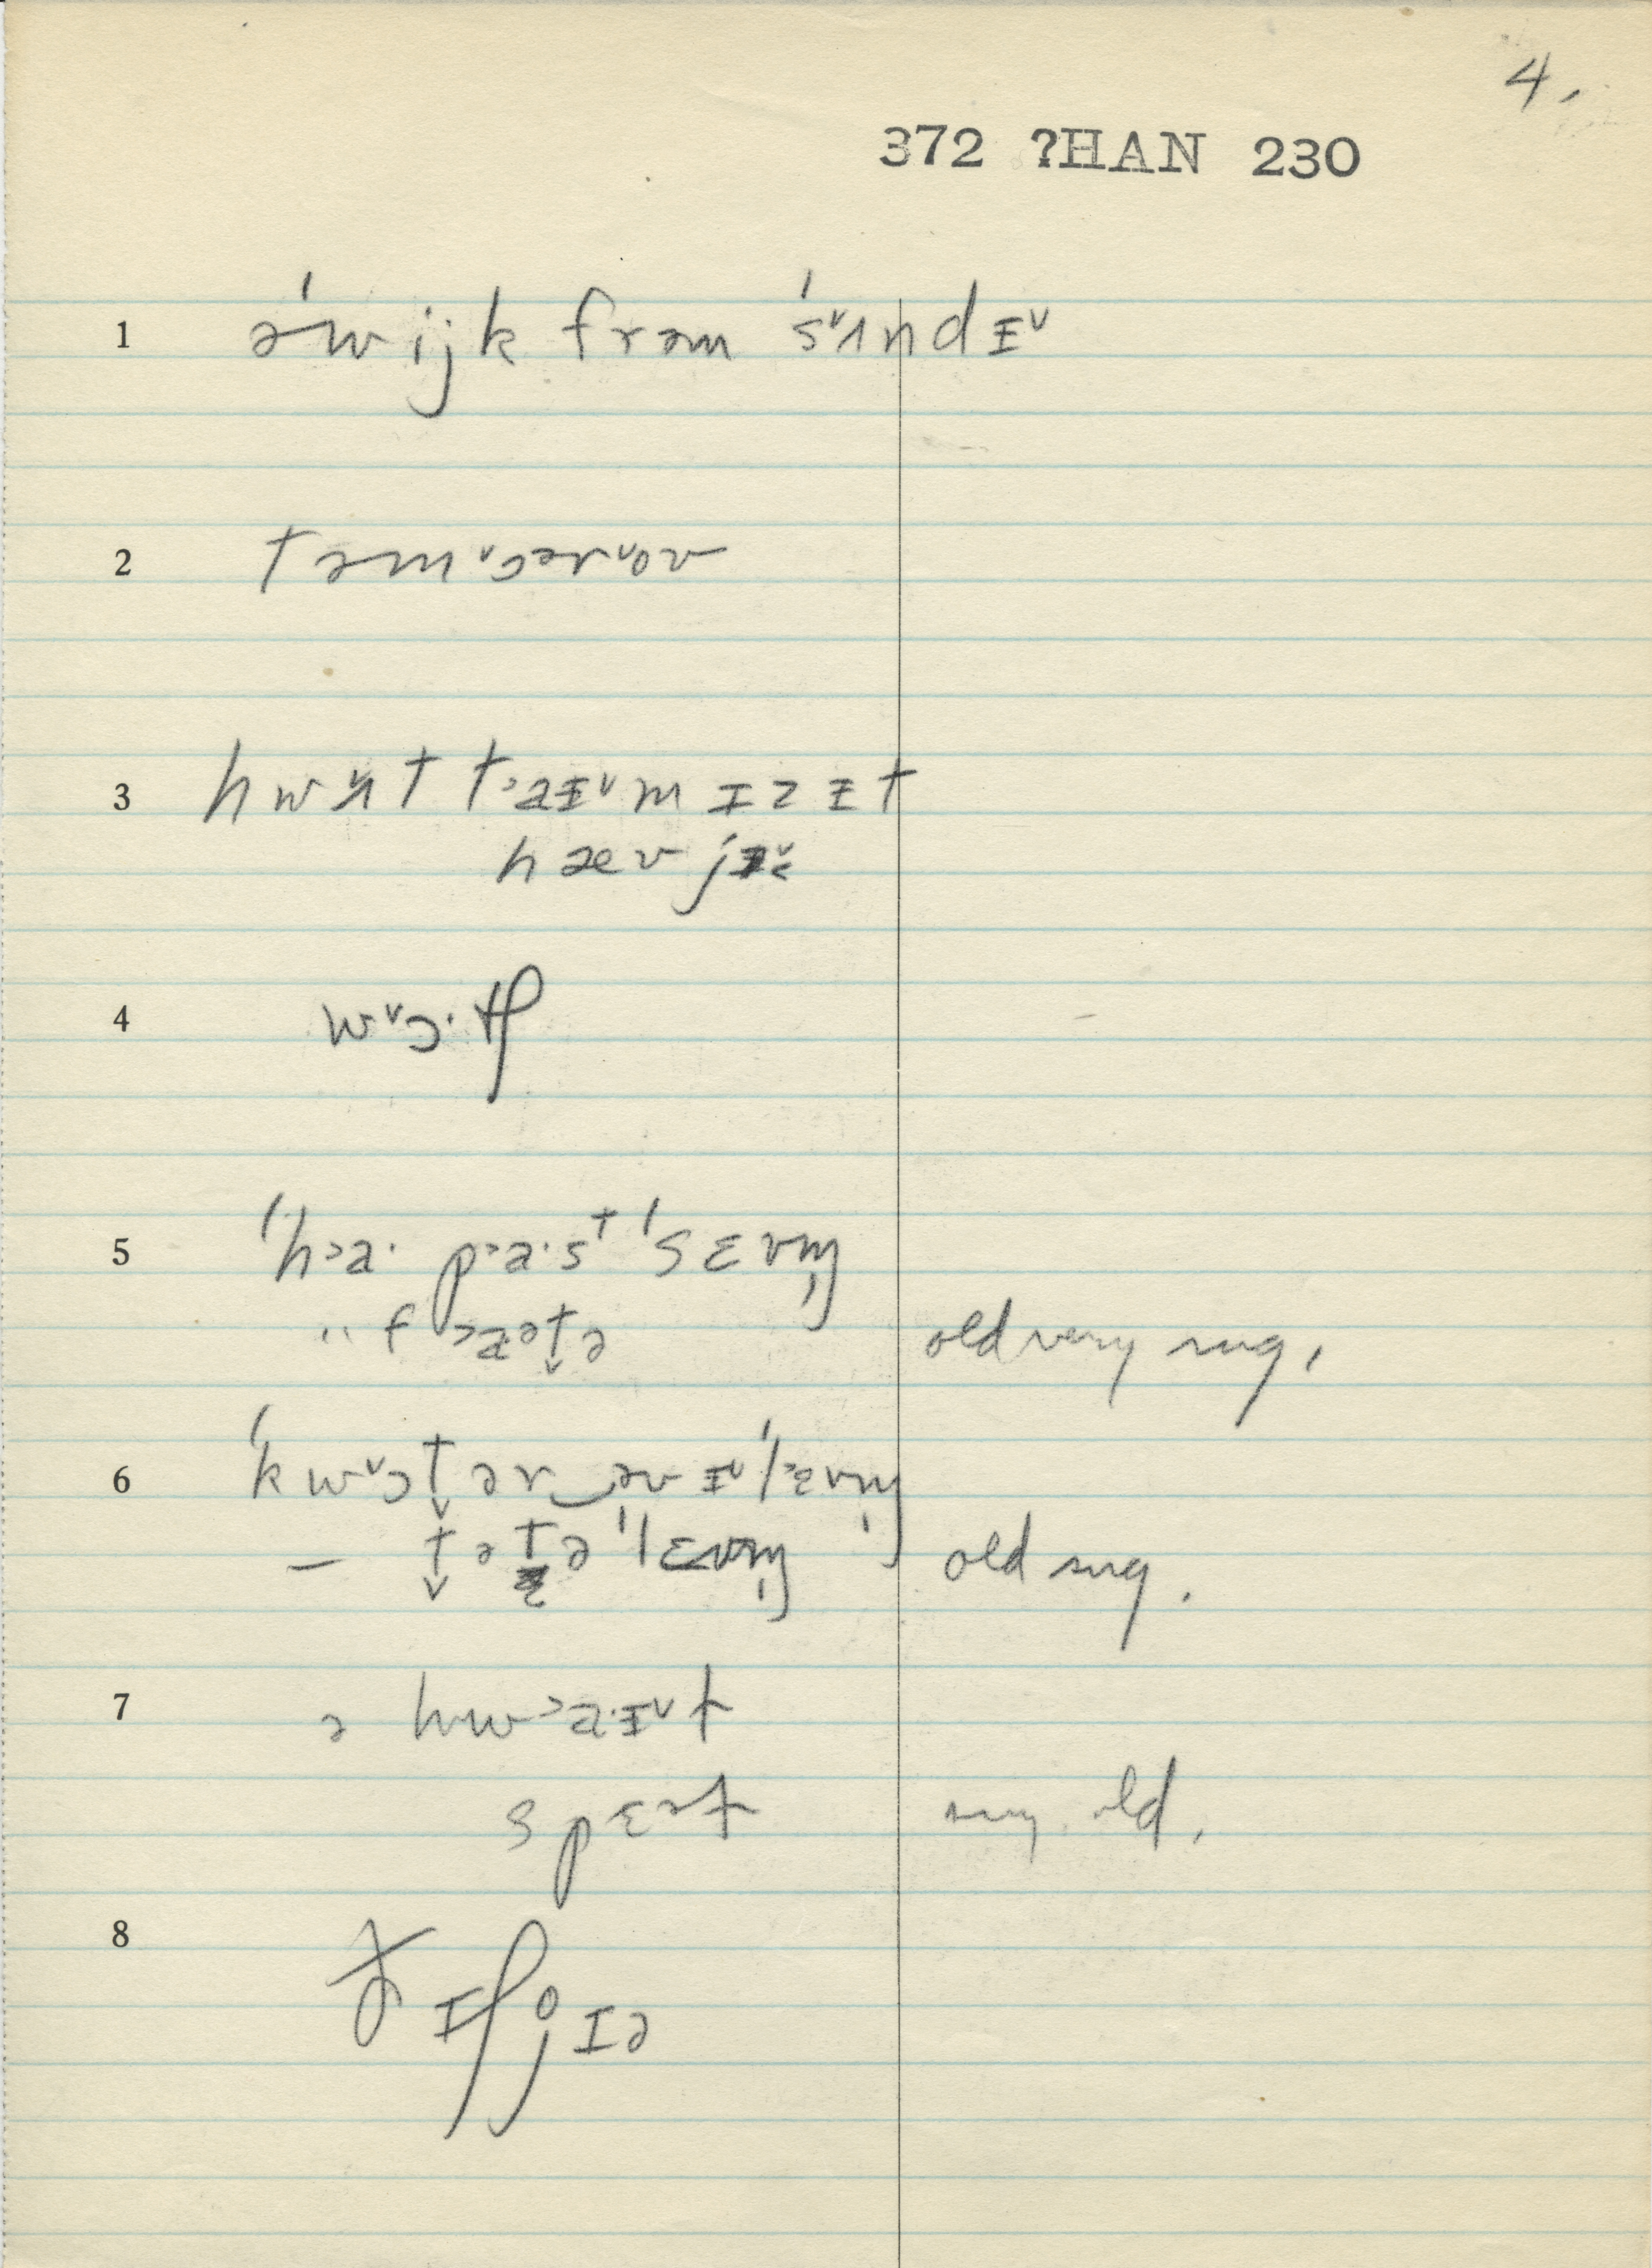 4.
372 ?HAN 230
1 əˈwijk frəm ˈs˅ʌndɪ˅
2 təm˅ɔər˅oʊ
3 hw˅ʌt t˃aɪ˅m ɪz ɪt
hæv jɪ˅
4 w˅ɔ·tʃ
5 ˈh˃a· p˃a·st ˈsɛvm̩
" f˃aət̬ə old very sug.
6 ˈkw˅ɔt̬ər‿əv ɪ˅ˈlɛvm̩
– t̬ətə ˈlɛvm̩ old sug.
7 ə hw˃a·ɪ˅t
spɛət sug. old.
8 ðɪʃ jɪə